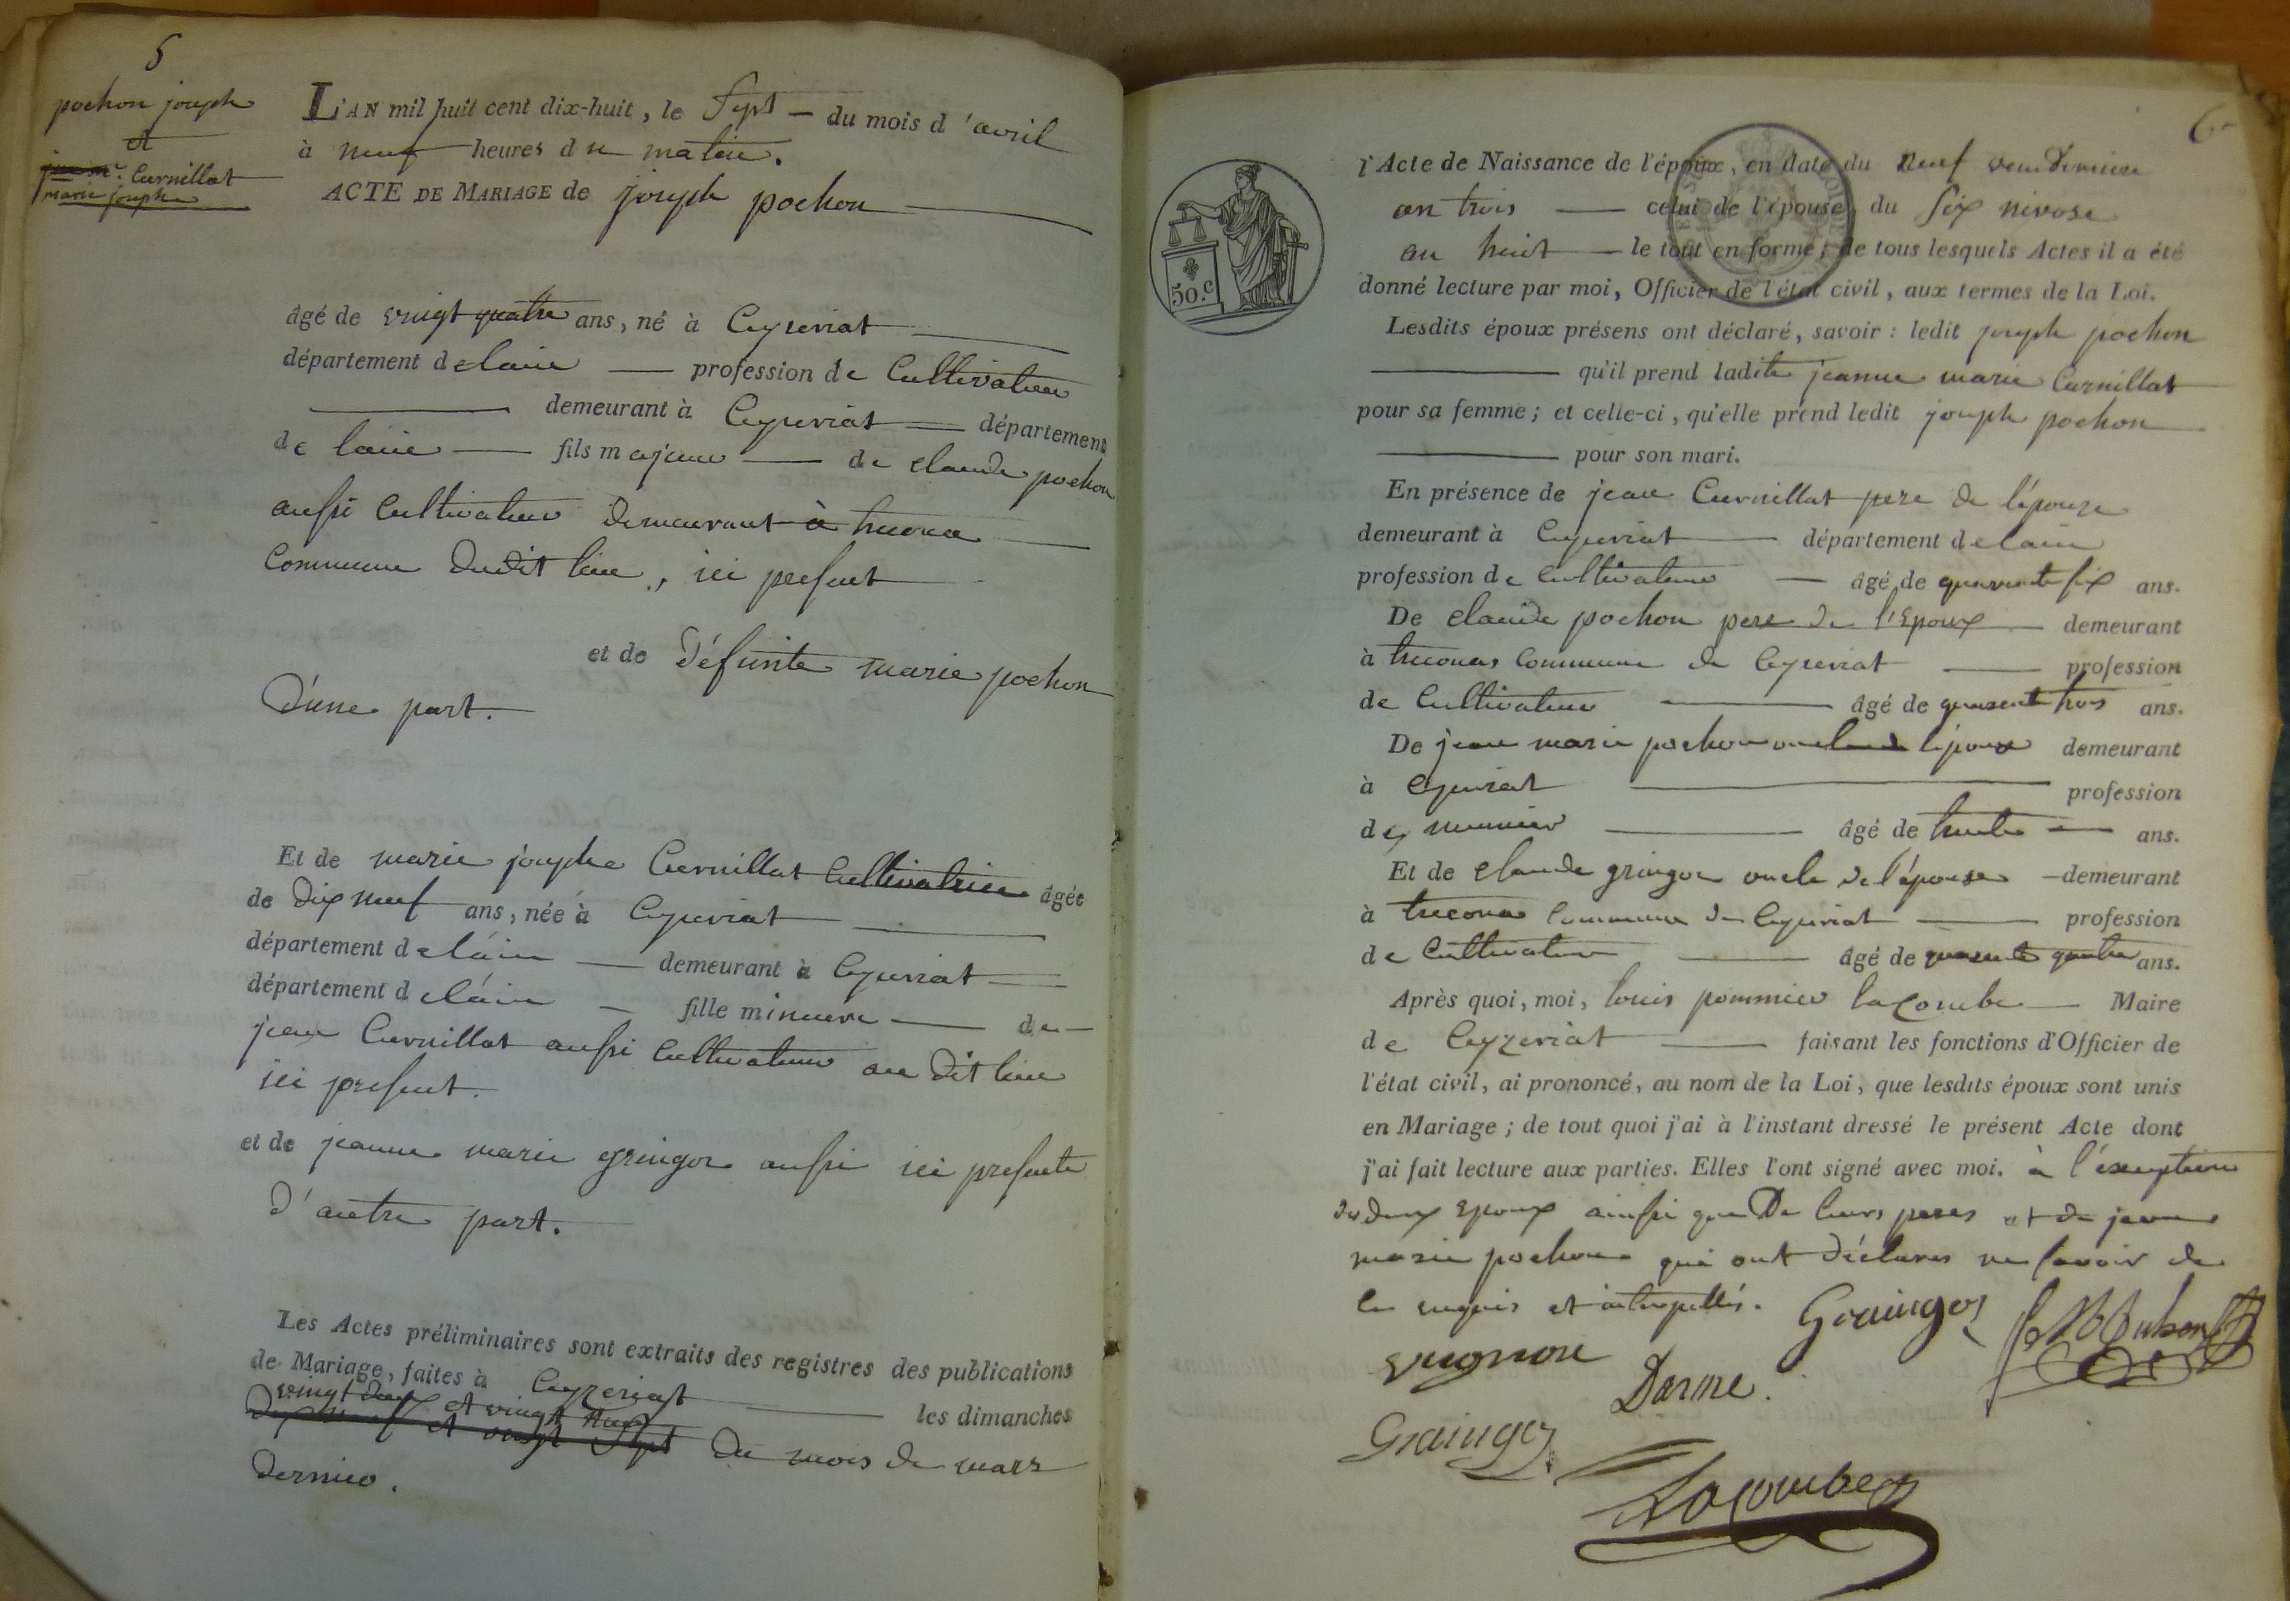 5
pochon joseph
et
Curnillat
marie josephe
L'AN mil huit cent dix-huit, le Sept du mois d'avril
à neuf heures du matin.
ACTE DE MARIAGE de joseph pochon
âgé de vingt quatre ans, né à Ceyzeriat
département de lain profession de Cultivateur
demeurant à Ceyzeriat département
de lain fils majeur de claude pochon
aussi Cultivateur demeurant à treconas
Commune dudit lieu, ici present
et de défunte marie pochon
D'une part.
Et de marie josephe Curnillat Cultivatrice âgée
de dix neuf ans, née à Ceyzeriat
département de l'ain demeurant à Ceyzeriat
département de l'ain fille mineure de
jean Curnillat aussi Cultivateur au dit lieu
ici present.
et de jeanne marie gringoz aussi ici presente
d'autre part.
Les Actes préliminaires sont extraits des registres des publications
de Mariage, faites à Ceyzeriat les dimanches
vingt deux et vingt neuf
dix neuf et vingt Sept du mois de mars
dernier.
6
50.c
l'Acte de Naissance de l'époux, en date du neuf vendemiere
an trois celui de l'épouse, du six nivose
an huit le tout en forme; de tous lesquels Actes il a été
donné lecture par moi, Officier de l'état civil, aux termes de la Loi.
Lesdits époux présens ont déclaré, savoir : ledit joseph pochon
qu'il prend ladite jeanne marie Curnillat
pour sa femme; et celle-ci, qu'elle prend ledit joseph pochon
pour son mari.
En présence de jean Curnillat pere de l'épouse
demeurant à Ceyzeriat département de lain
profession de Cultivateur âgé de quarante six ans.
De claude pochon pere de l'Epoux demeurant
à treconas commune de Ceyzeriat profession
de Cultivateur âgé de quarante trois ans.
De jean marie pochon oncle de l'epoux demeurant
à Ceyzeriat profession
de meunier âgé de trente ans.
Et de claude gringoz oncle de l'épouse demeurant
à treconas commune de Ceyzeriat profession
de Cultivateur âgé de quarante quatre ans.
Après quoi, moi, louis pommier lacombe Maire
de Ceyzeriat faisant les fonctions d'Officier de
l'état civil, ai prononcé, au nom de la Loi, que lesdits époux sont unis
en Mariage; de tout quoi j'ai à l'instant dressé le présent Acte dont
j'ai fait lecture aux parties. Elles l'ont signé avec moi. à l'exeption
des deux Epoux ainsi que De leurs peres et de jean
marie pochon qui ont déclarés ne savoir de
ce enquis et interpellés. Graingoz
Vugnon
Darme.
Graingoz
Lacombe